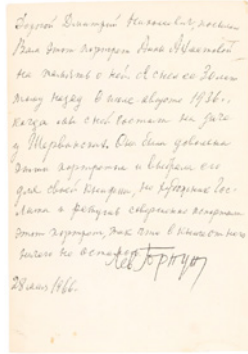 Дорогой Дмитрий Николаевич, посылаю
Вам этот портрет Анны Ахматовой
на память о ней. Я снял ее 30 лет
тому назад в июле августе 1936 г.
когда мы с ней гостили на даче
у Шервинских. Она была довольна
этим портретом и выбрала его
для своей книги, но художник Гос-
лита и ретушер совершенно испортили
этот портрет, так что в книге от него
ничего не осталось.
Лев Горнунг
28 мая 1966.